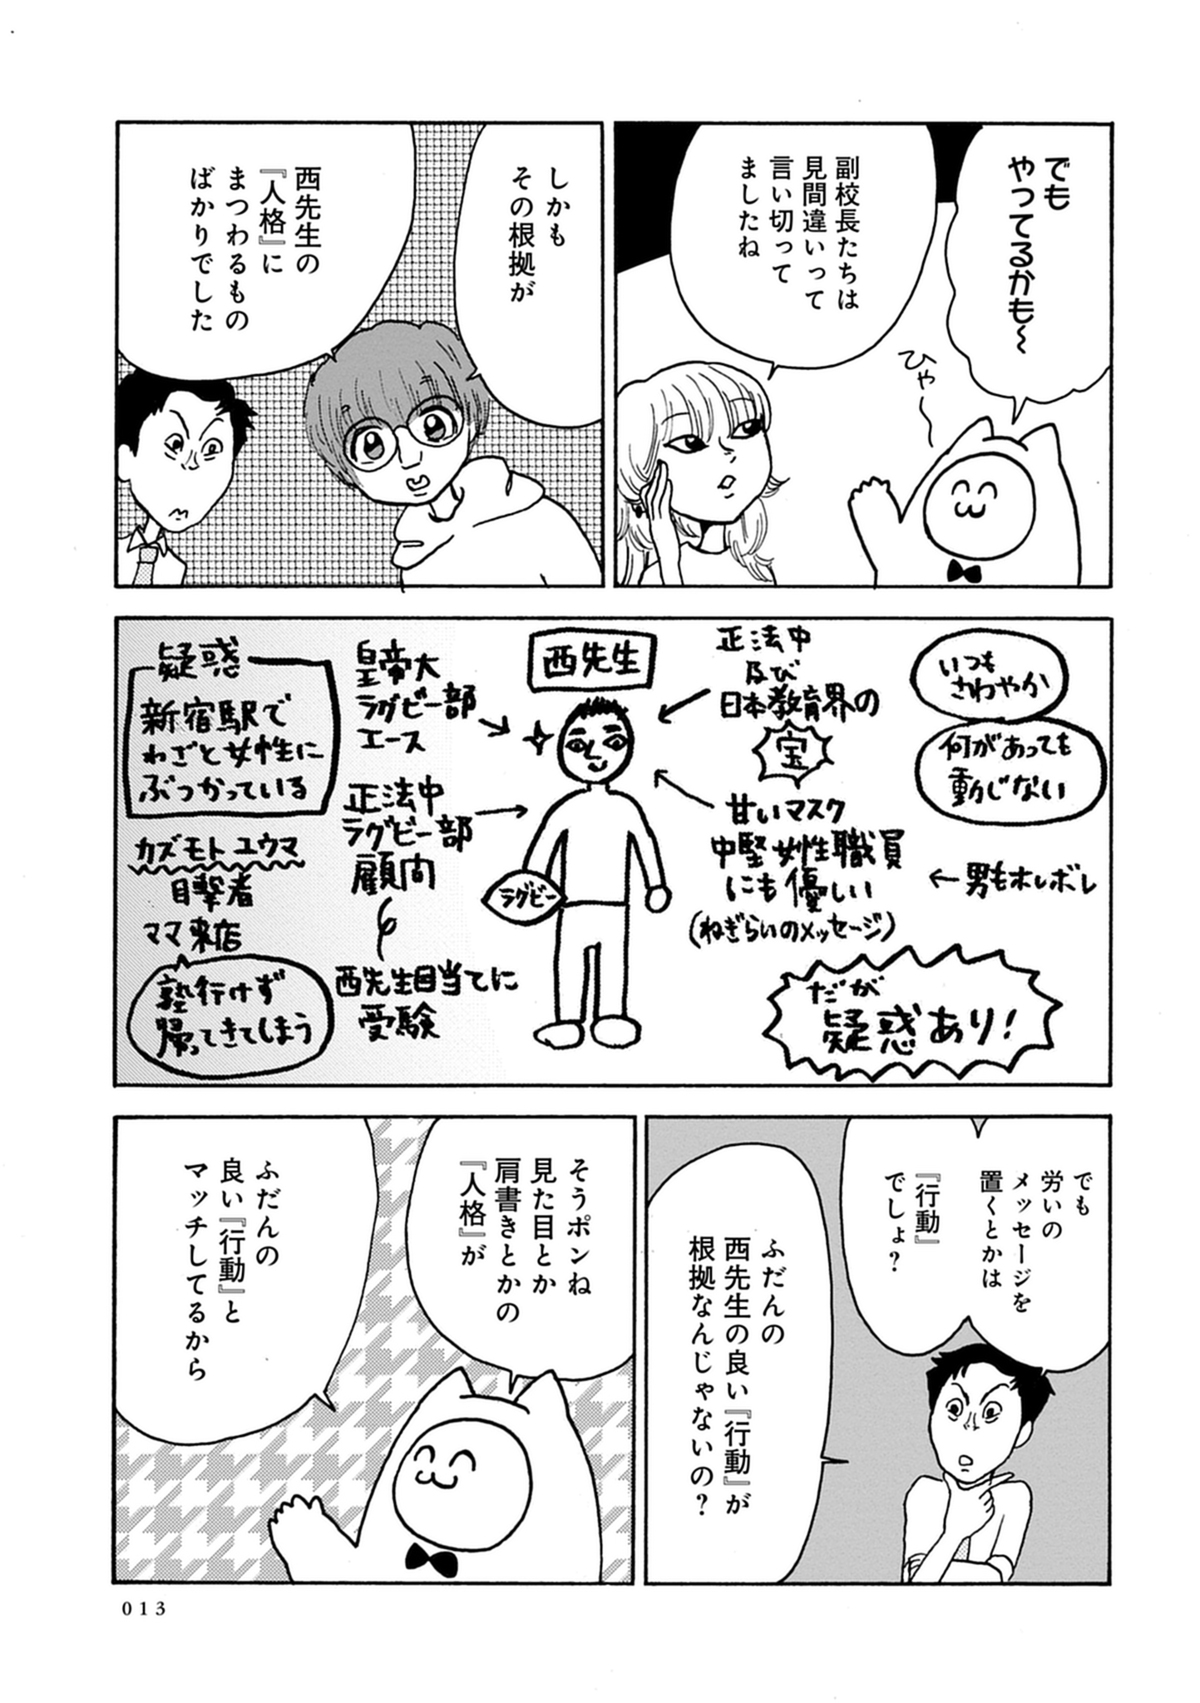 でも
やってるかも〜
ひゃ〜
副校長たちは
見間違いって
言い切って
ましたね
しかも
その根拠が
西先生の
『人格』に
まつわるもの
ばかりでした
いつも
さわやか
何があっても
動じない
←男もホレボレ
正法中
及び
日本教育界の
宝
甘いマスク
中堅女性職員
にも優しい
(ねぎらいのメッセージ)
だが
疑惑あり!
西先生
ラグビー
皇帝大
ラグビー部
エース
正法中
ラグビー部
顧問
西先生目当てに
受験
疑惑
新宿駅で
わざと女性に
ぶつかっている
カズモトユウマ
目撃者
ママ来店
塾行けず
帰ってきてしまう
でも
労いの
メッセージを
置くとかは
『行動』
でしょ?
ふだんの
西先生の良い『行動』が
根拠なんじゃないの?
そうポンね
見た目とか
肩書きとかの
『人格』が
ふだんの
良い『行動』と
マッチしてるから
013